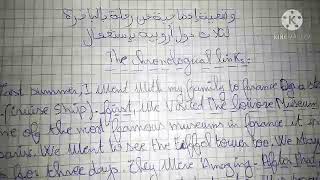 وضعية ادماجية عن رحلة بالباخرة
لثلاث دول أوروبية باستعمال
The chronological links:
Last summer, I went with my family to france on a
(cruise ship). first, we visited the louvre Museum
one of the most famous museums in france it in
paris. We went to see the Eiffel tower too. We stay
three days. They were Amazing. After that
KINEMASTER